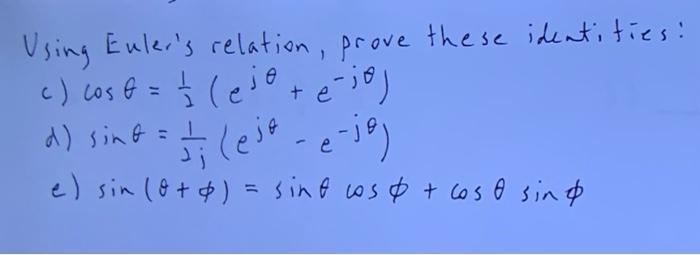 Using Euler's relation, prove these identities:
c) cos θ = 1/2 (e^{jθ} + e^{-jθ})
d) sin θ = 1/2j (e^{jθ} - e^{-jθ})
e) sin (θ + ϕ) = sin θ cos ϕ + cos θ sin ϕ